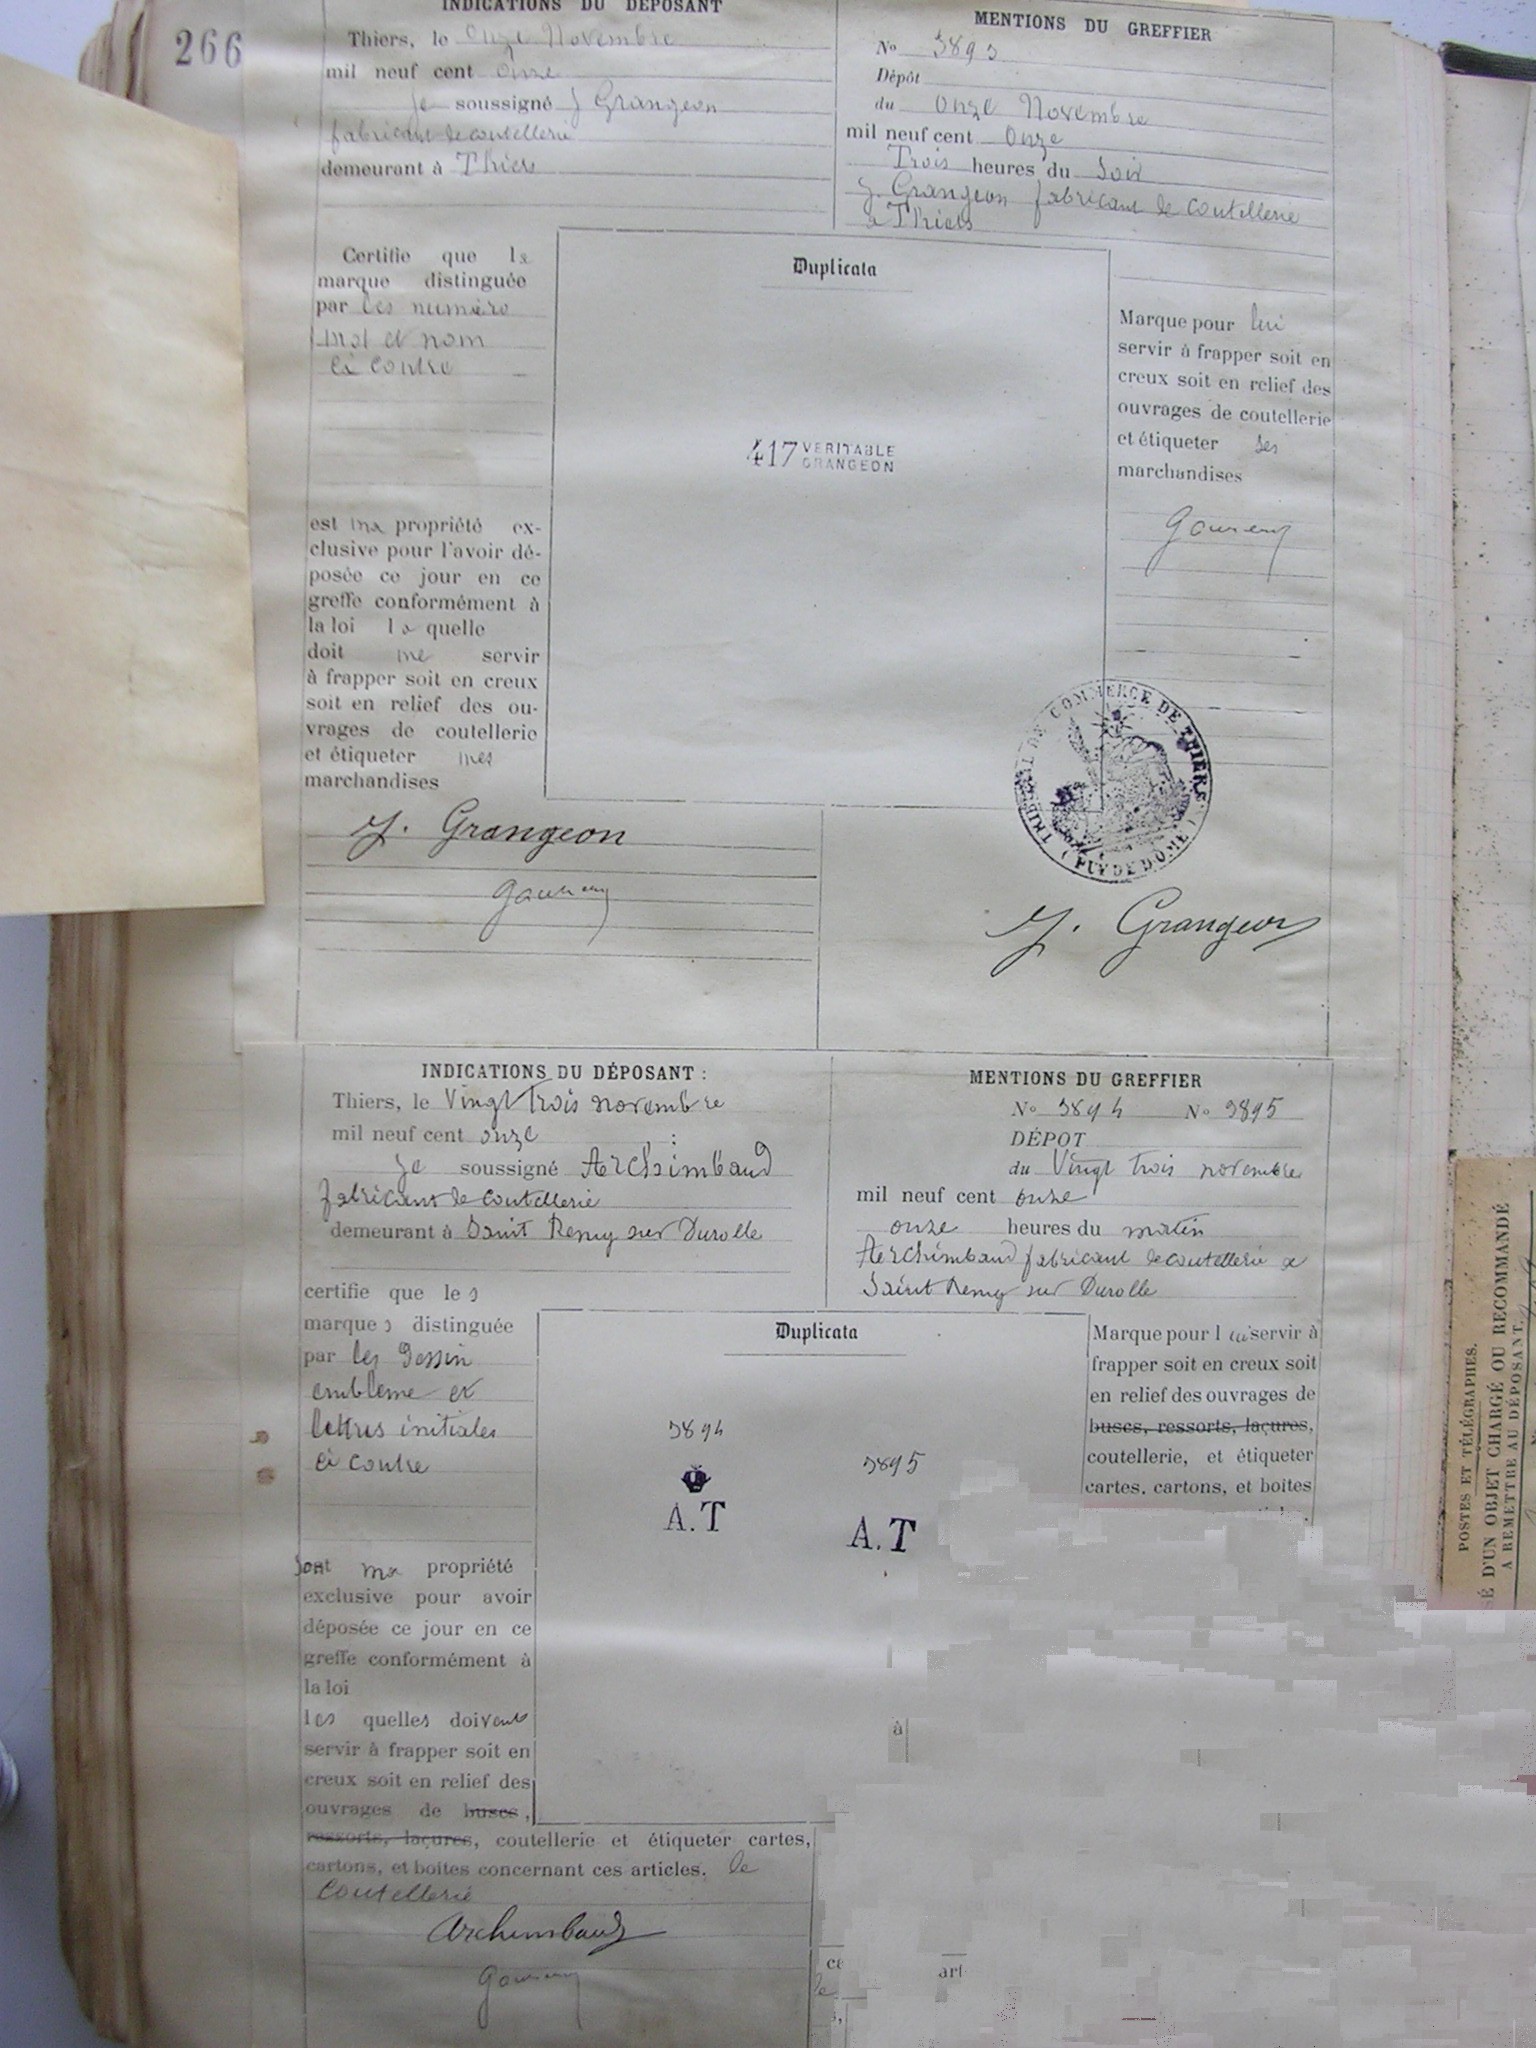 266
INDICATIONS DU DÉPOSANT
Thiers, le Onze Novembre
mil neuf cent Onze
Je soussigné J Grangeon
fabricant de coutellerie
demeurant à Thiers
MENTIONS DU GREFFIER
No 3893
Dépôt
du Onze Novembre
mil neuf cent Onze
Trois heures du Soir
J. Grangeon fabricant de coutellerie
a Thiers
Certifie que la
marque distinguée
par les numéro
mot et nom
ci contre
est ma propriété ex-
clusive pour l'avoir dé-
posée ce jour en ce
greffe conformément à
la loi la quelle
doit me servir
à frapper soit en creux
soit en relief des ou-
vrages de coutellerie
et étiqueter mes
marchandises
Duplicata
417 VERITABLE
GRANGEON
Marque pour lui
servir à frapper soit en
creux soit en relief des
ouvrages de coutellerie
et étiqueter ses
marchandises
TRIBUNAL DE COMMERCE DE THIERS
(PUY DE DOME)
J. Grangeon
J. Grangeon
INDICATIONS DU DÉPOSANT :
Thiers, le Vingt Trois novembre
mil neuf cent onze
Je soussigné Archimbaud
fabricant de coutellerie
demeurant à Saint Remy sur Durolle
MENTIONS DU GREFFIER
No 3894 No 3895
DÉPOT
du Vingt Trois novembre
mil neuf cent onze
onze heures du matin
Archimbaud fabricant de coutellerie a
Saint Remy sur Durolle
certifie que les
marques distinguée
par les dessin
embleme et
lettres initiales
ci contre
sont ma propriété
exclusive pour avoir
déposée ce jour en ce
greffe conformément à
la loi
les quelles doivent
servir à frapper soit en
creux soit en relief des
ouvrages de buscs,
ressorts, laçures, coutellerie et étiqueter cartes,
cartons, et boites concernant ces articles. le
Coutellerie
Archimbaud
Duplicata
3894
3895
A.T
A.T
Marque pour lui servir à
frapper soit en creux soit
en relief des ouvrages de
buscs, ressorts, laçures,
coutellerie, et étiqueter
cartes, cartons, et boites
à
ce
art
le
POSTES ET TÉLÉGRAPHES.
SÉ D'UN OBJET CHARGÉ OU RECOMMANDÉ
A REMETTRE AU DÉPOSANT.